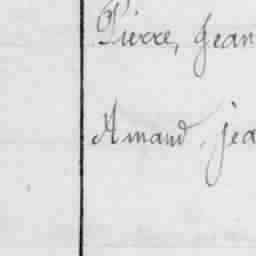 Pierre, Jean
Amand, jea